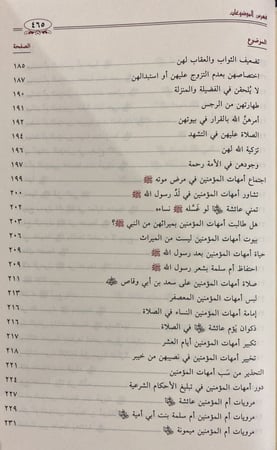 فهرس الموضوعات
٤٦٥
الموضوع
الصفحة
تضعيف الثواب والعقاب لهن ١٨٥
اختصاصهن بعدم التزوج عليهن أو استبدالهن ١٨٧
لا يُلحقن في الفضيلة والمنزلة ١٩٠
طهارتهن من الرجس ١٩١
أمرهنَّ الله بالقرار في بيوتهن ١٩٢
الصلاة عليهن في التشهد ١٩٤
تزكية الله لهن ١٩٦
وجودهن في الأمة رحمة ١٩٧
اجتماع أمهات المؤمنين في مرض موته ﷺ ١٩٩
تشاور أمهات المؤمنين في لَدِّ رسول الله ﷺ ٢٠٠
تمني عائشة لو غسَّله ﷺ نساءه ٢٠٢
هل طالبت أمهات المؤمنين بميراثهن من النبي ﷺ؟ ٢٠٣
بيوت أمهات المؤمنين ليست من الميراث ٢٠٦
حياة أمهات المؤمنين بعد رسول الله ﷺ ٢٠٩
احتفاظ أم سلمة بشعر رسول الله ﷺ ٢٠٩
صلاة أمهات المؤمنين على سعد بن أبي وقاص ٢١١
لبس أمهات المؤمنين المعصفر ٢١٣
إمامة أمهات المؤمنين النساء في الصلاة ٢١٦
ذكوان يؤم عائشة في الصلاة ٢١٧
تكبير أمهات المؤمنين أيام العشر ٢١٨
تخيير أمهات المؤمنين في نصيبهن من خيبر ٢٢١
التحذير من سَب أمهات المؤمنين
دور أمهات المؤمنين في تبليغ الأحكام الشرعية ٢٢٤
مرويات أم المؤمنين عائشة ٢٢٧
مرويات أم المؤمنين أم سلمة بنت أبي أمية ٢٢٩
مرويات أم المؤمنين ميمونة ٢٣١